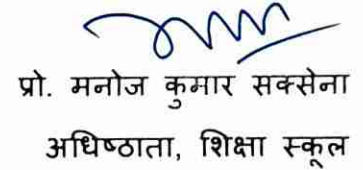 प्रो. मनोज कुमार सक्सेना
अधिष्ठाता, शिक्षा स्कूल